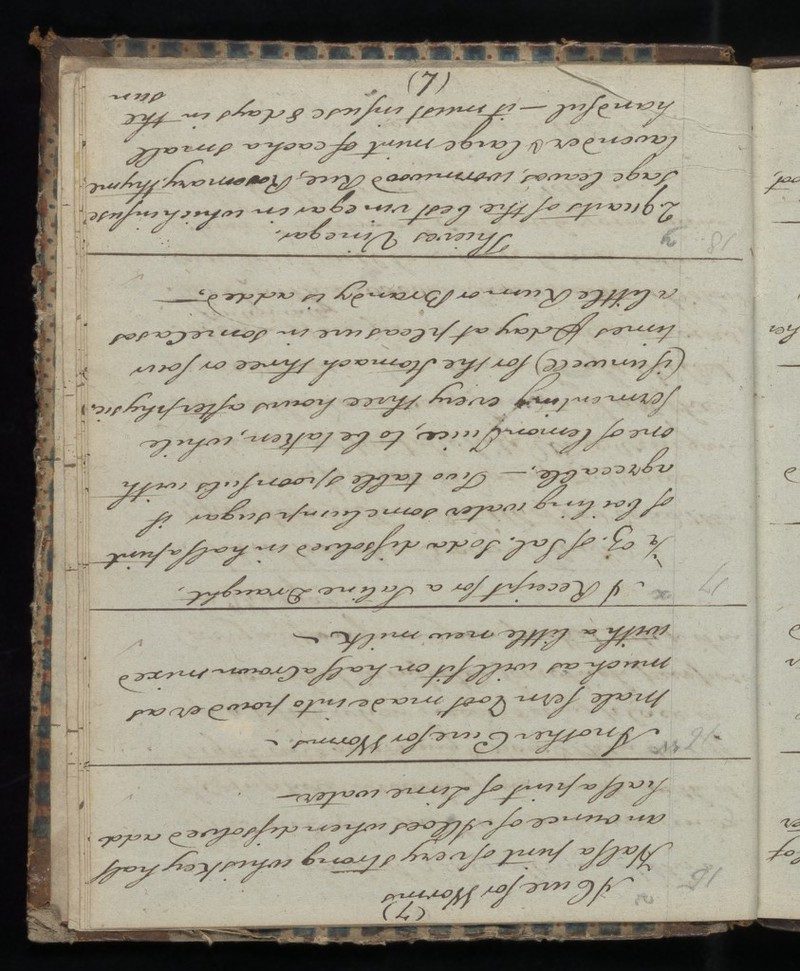 (7)
A Cure for Worms
15 Half a pint of very strong whiskey half
an ounce of Alloes when dissolved add
half a pint of Lime water —
16 Another Cure for Worms —
Male fern Root made into powder as
much as will fit on half a Crown mixed
with a little new milk —
17 A Receipt for a Saline Draught.
½ oz. of Sal. Soda dissolved in half a pint
of boiling water some lump sugar if
agreeable. — Two table spoonfuls with
one of lemon Juice, to be taken, while
fermenting every three hours after physic,
(if unwell) for the Stomach three or four
times day at pleasure in some Cases
a little Rum or Brandy is added. —
18 Thieves Vinegar.
2 quarts of the best vinegar in which infuse
Sage leaves, wormwood Rue, Rosemary, thyme,
lavender & large mint of each a small
handful — it must infuse 8 days in the
sun
(7)